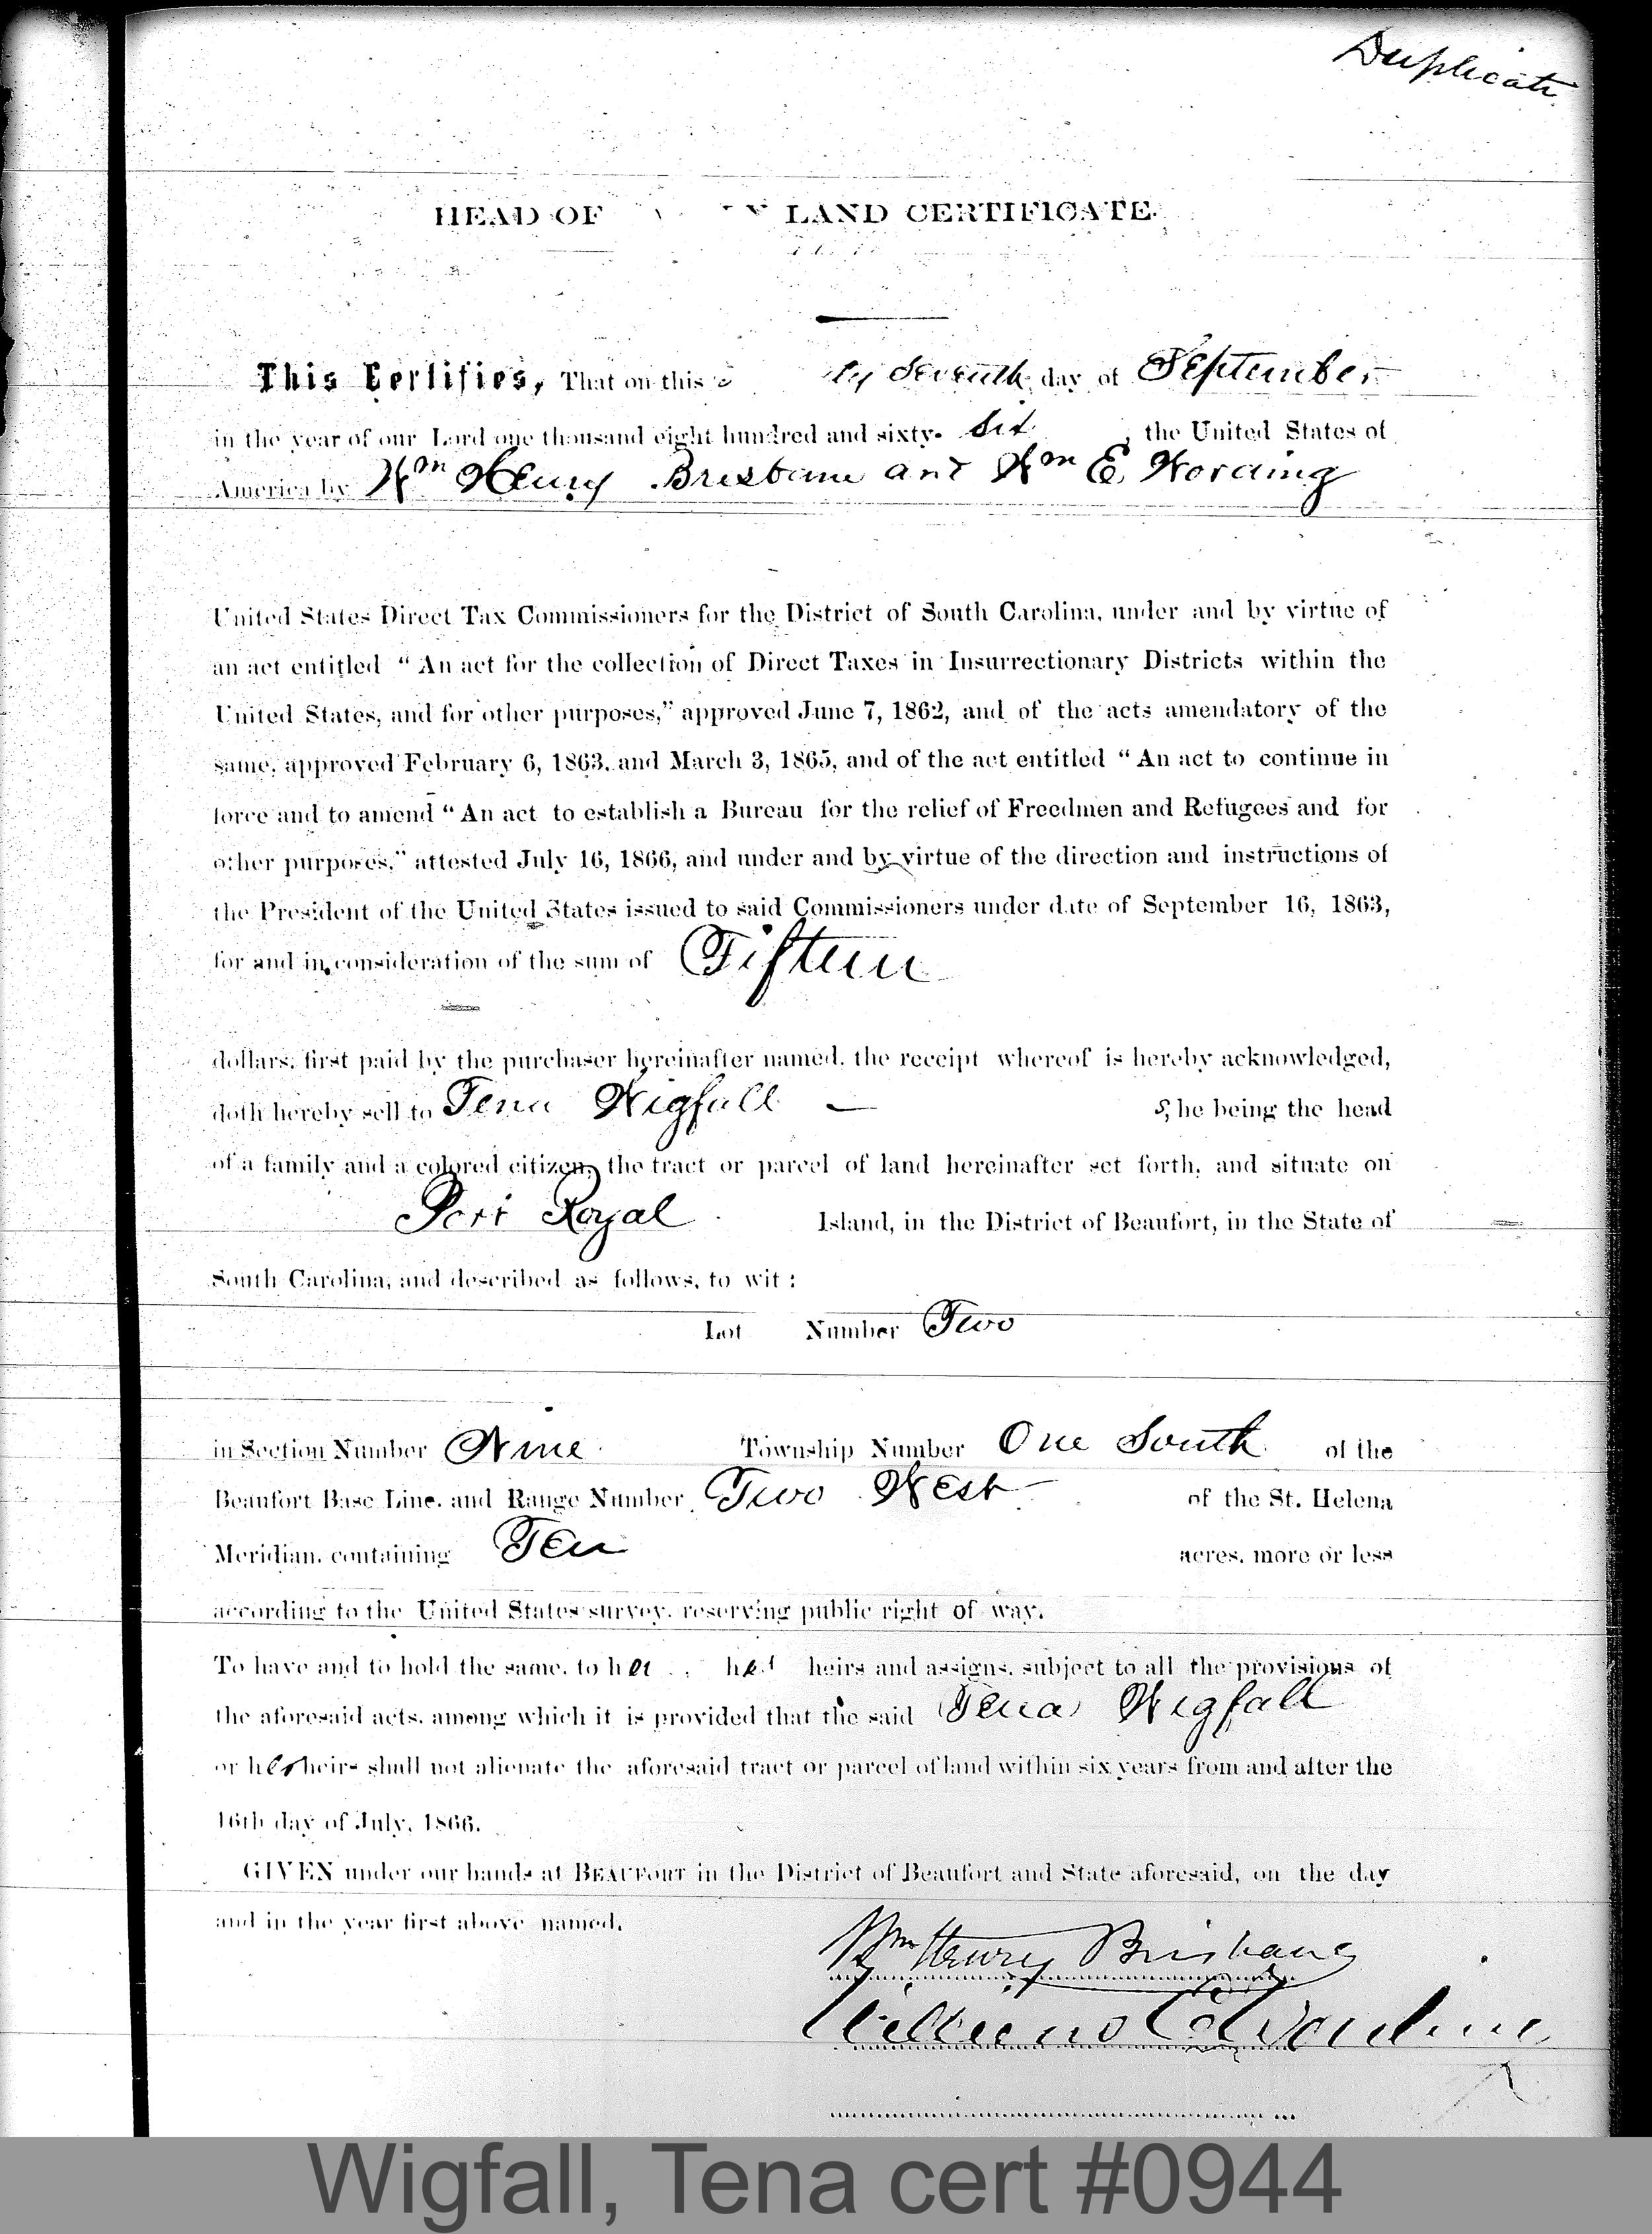 Duplicate
HEAD OF LAND CERTIFICATE.
This Certifies, That on this ty Seventh day of September
in the year of our Lord one thousand eight hundred and sixty- Six , the United States of
America by Wm Henry Brisbane and Wm E. Wording
United States Direct Tax Commissioners for the District of South Carolina, under and by virtue of
an act entitled “An act for the collection of Direct Taxes in Insurrectionary Districts within the
United States, and for other purposes,” approved June 7, 1862, and of the acts amendatory of the
same, approved February 6, 1863, and March 3, 1865, and of the act entitled “An act to continue in
force and to amend “An act to establish a Bureau for the relief of Freedmen and Refugees and for
other purposes,” attested July 16, 1866, and under and by virtue of the direction and instructions of
the President of the United States issued to said Commissioners under date of September 16, 1863,
for and in consideration of the sum of Fifteen
dollars, first paid by the purchaser hereinafter named, the receipt whereof is hereby acknowledged,
doth hereby sell to Tena Wigfall — S,he being the head
of a family and a colored citizen, the tract or parcel of land hereinafter set forth, and situate on
Port Royal Island, in the District of Beaufort, in the State of
South Carolina, and described as follows, to wit :
Lot Number Two
in Section Number Nine Township Number One South of the
Beaufort Base Line, and Range Number Two West of the St. Helena
Meridian, containing Ten acres, more or less
according to the United States survey, reserving public right of way.
To have and to hold the same, to her , her heirs and assigns, subject to all the provisions of
the aforesaid acts, among which it is provided that the said Tena Wigfall
or her heirs shall not alienate the aforesaid tract or parcel of land within six years from and after the
16th day of July, 1866.
GIVEN under our hands at BEAUFORT in the District of Beaufort and State aforesaid, on the day
and in the year first above named.
Wm Henry Brisbane
William E Wording
Wigfall, Tena cert #0944